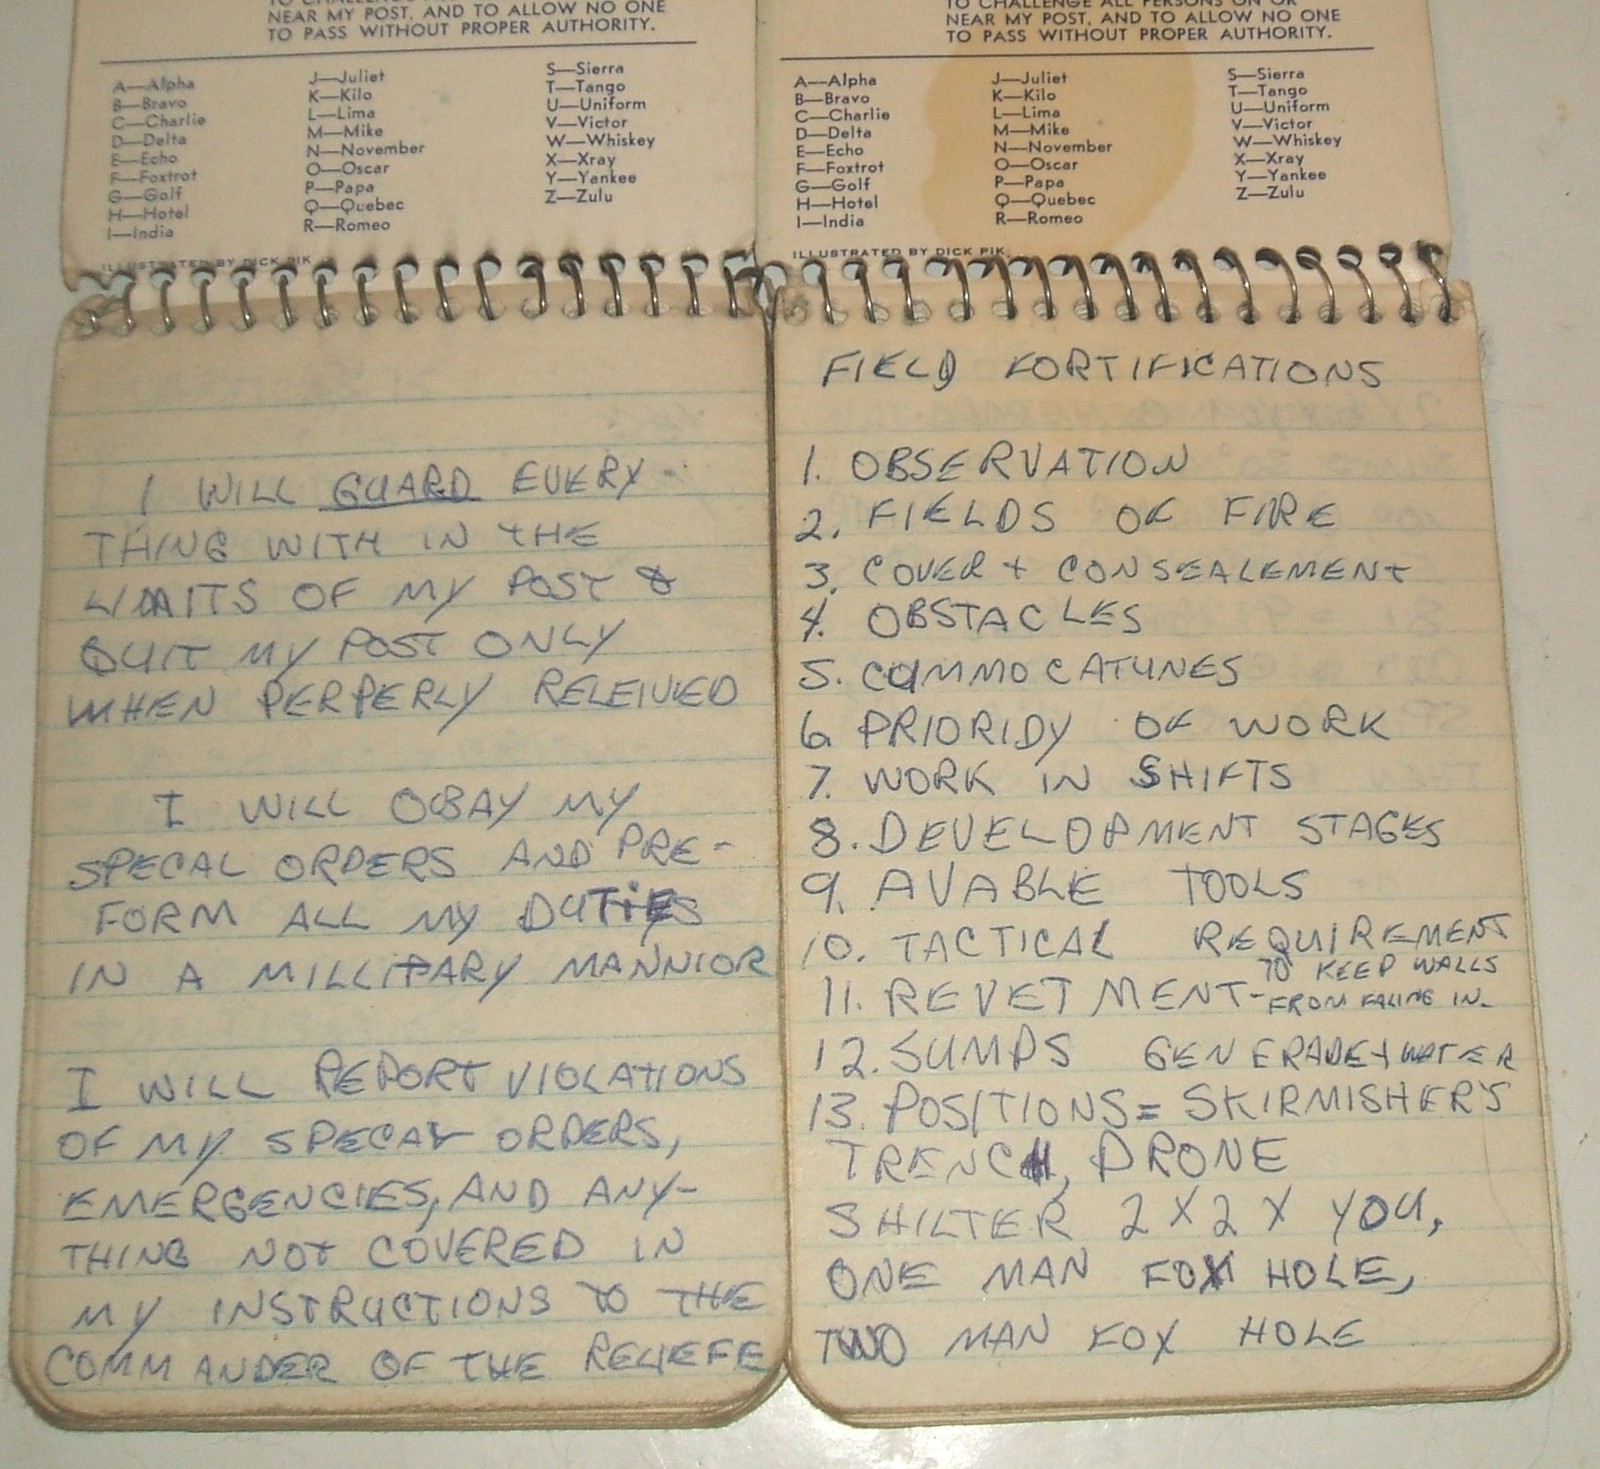 NEAR MY POST, AND TO ALLOW NO ONE
TO PASS WITHOUT PROPER AUTHORITY.
A—Alpha
B—Bravo
C—Charlie
D—Delta
E—Echo
F—Foxtrot
G—Golf
H—Hotel
I—India
J—Juliet
K—Kilo
L—Lima
M—Mike
N—November
O—Oscar
P—Papa
Q—Quebec
R—Romeo
S—Sierra
T—Tango
U—Uniform
V—Victor
W—Whiskey
X—Xray
Y—Yankee
Z—Zulu
ILLUSTRATED BY DICK PIK
I WILL GUARD EVERY-
THING WITH IN THE
LIMITS OF MY POST &
QUIT MY POST ONLY
WHEN PERPERLY RELEIVED
I WILL OBAY MY
SPECAL ORDERS AND PRE-
FORM ALL MY DUTIES
IN A MILLITARY MANNIOR
I WILL REPORT VIOLATIONS
OF MY SPECAL ORDERS,
EMERGENCIES, AND ANY-
THING NOT COVERED IN
MY INSTRUCTIONS TO THE
COMMANDER OF THE RELIEFE
TO CHALLENGE ALL PERSONS ON OR
NEAR MY POST, AND TO ALLOW NO ONE
TO PASS WITHOUT PROPER AUTHORITY.
A—Alpha
B—Bravo
C—Charlie
D—Delta
E—Echo
F—Foxtrot
G—Golf
H—Hotel
I—India
J—Juliet
K—Kilo
L—Lima
M—Mike
N—November
O—Oscar
P—Papa
Q—Quebec
R—Romeo
S—Sierra
T—Tango
U—Uniform
V—Victor
W—Whiskey
X—Xray
Y—Yankee
Z—Zulu
ILLUSTRATED BY DICK PIK
FIELD FORTIFICATIONS
1. OBSERVATION
2. FIELDS OF FIRE
3. COVER + CONSEALEMENT
4. OBSTACLES
5. COMMOCATUNES
6. PRIORIDY OF WORK
7. WORK IN SHIFTS
8. DEVELOPMENT STAGES
9. AVABLE TOOLS
10. TACTICAL REQUIREMENT
11. REVETMENT- TO KEEP WALLS
FROM FALING IN.
12. SUMPS GENERADE + WATER
13. POSITIONS = SKIRMISHER'S
TRENCH, PRONE
SHILTER 2 X 2 X YOU,
ONE MAN FOX HOLE,
TWO MAN FOX HOLE